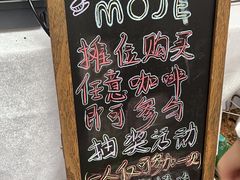 MOJE
摊位购买
任意咖啡
即可参与
抽奖活动